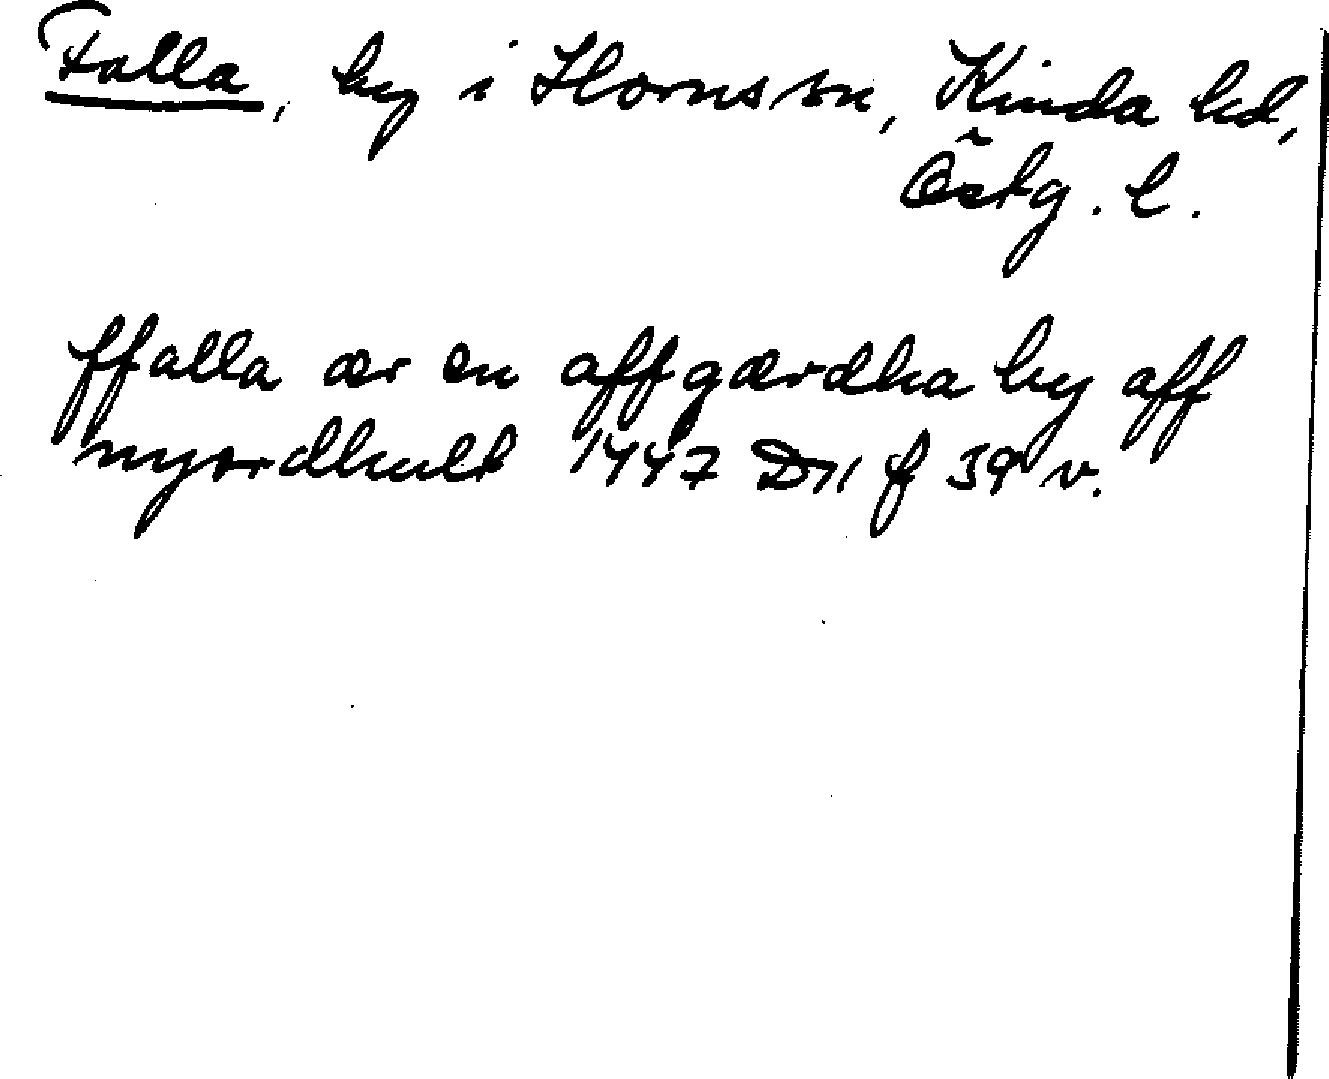 Falla, by i Horns sn, Kinda hd,
Östg. l.
ffalla ær en affgærdha by aff
nyordhult 1447 D11 f 39 v.